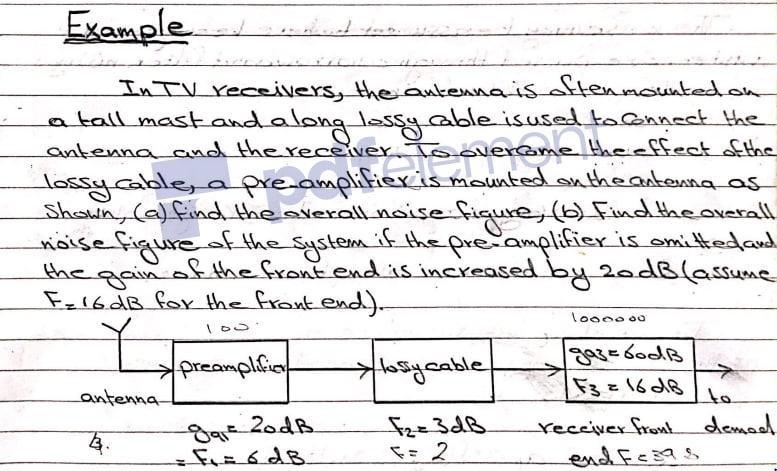 Example
In TV receivers, the antenna is often mounted on
a tall mast and a long lossy cable is used to connect the
antenna and the receiver. To overcome the effect of the
lossy cable, a pre-amplifier is mounted on the antenna as
shown, (a) find the overall noise figure, (b) Find the overall
noise figure of the system if the pre-amplifier is omitted and
the gain of the front end is increased by 20dB (assume
F=16dB for the front end).
100
1000000
preamplifier
lossy cable
ga3=60dB
F3=16dB
antenna
to
ga1=20dB
F2=3dB
receiver front
demod
= F1=6dB
F=2
end F=39.8
pdfelement